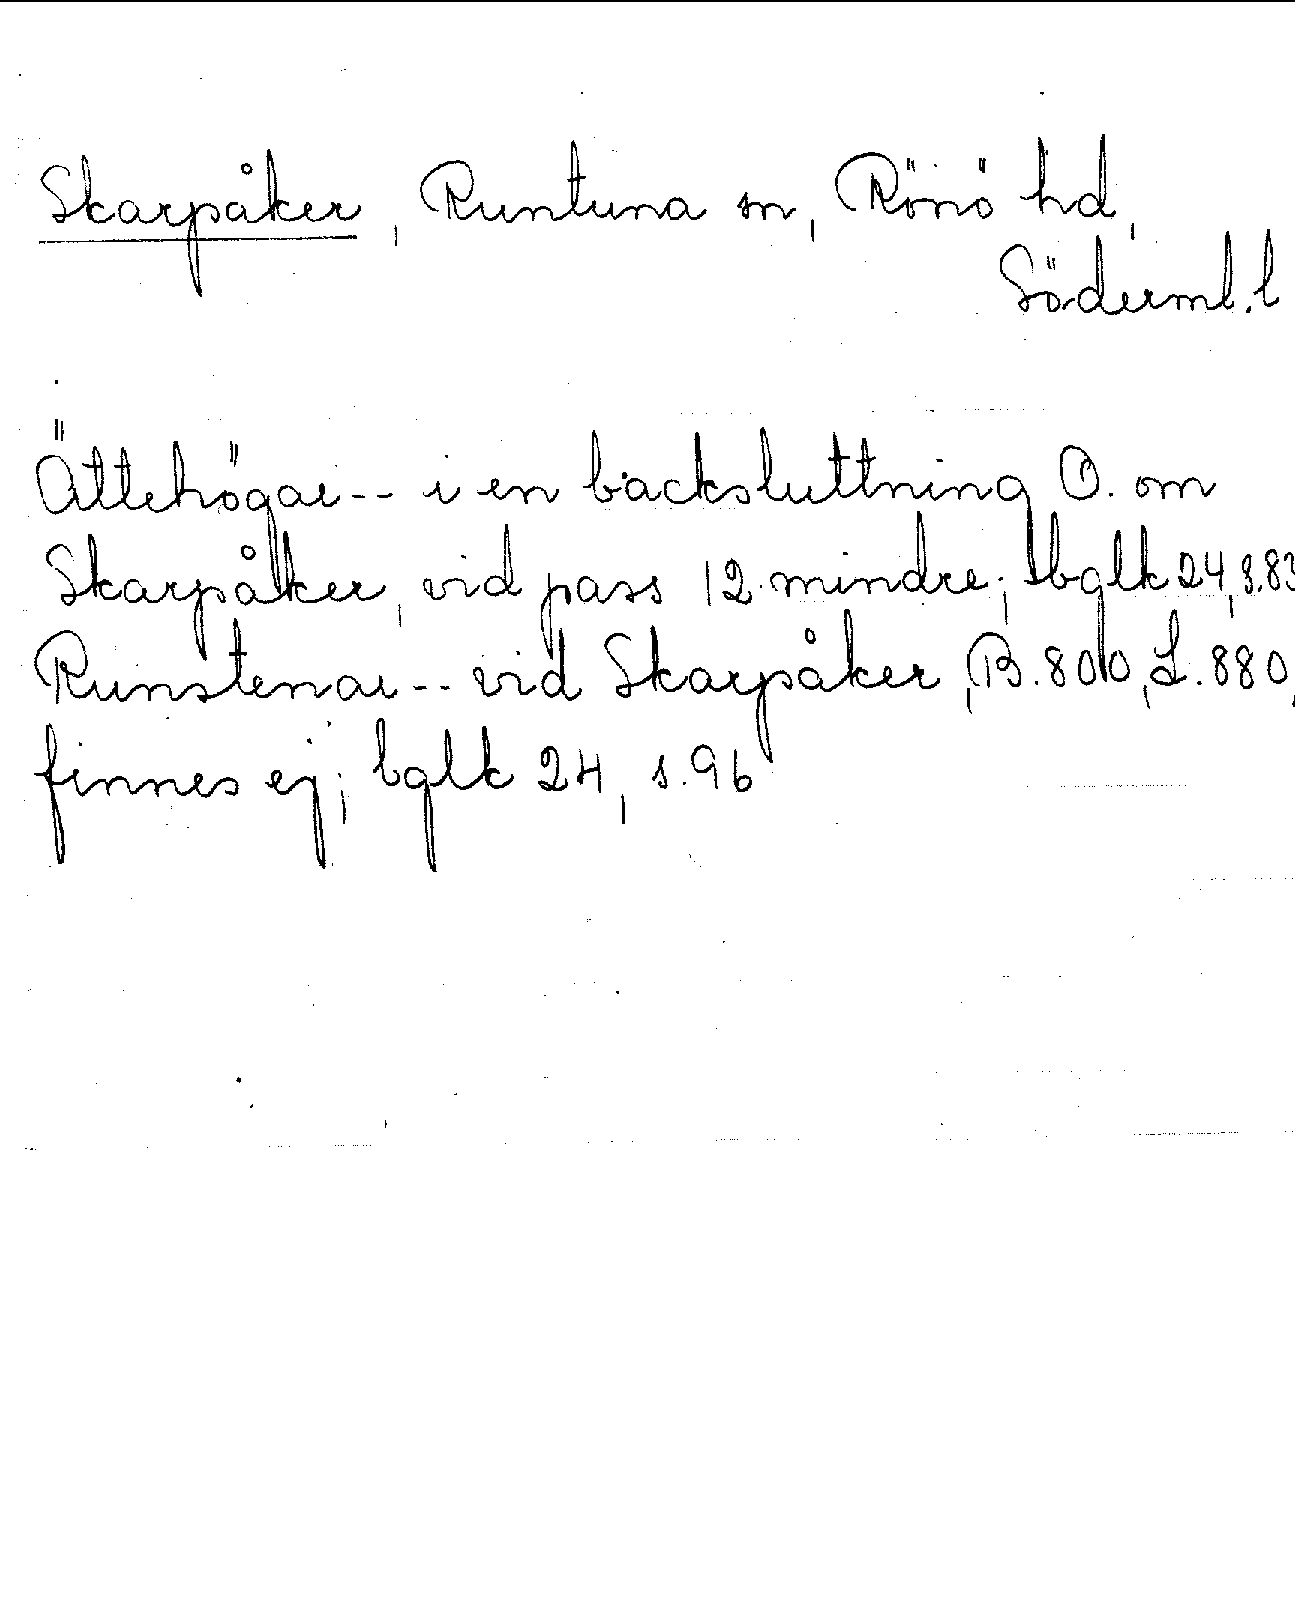 Skarpåker, Runtuna sn, Rönö hd,
Söderml. l
Ättehögar -- i en backsluttning O. om
Skarpåker, vid pass 12 mindre; bglk 24, s. 83
Runstenar -- vid Skarpåker, B. 800, L. 880,
finnes ej; bglk 24, s. 96